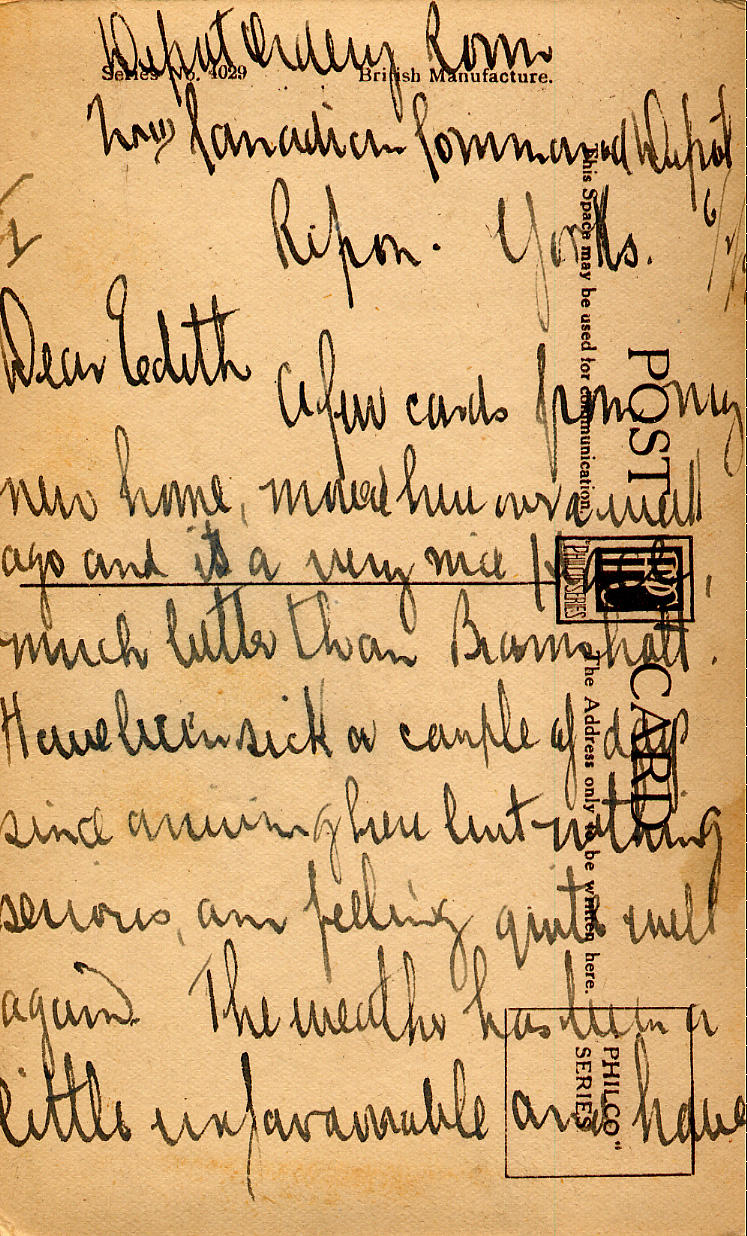 Depot Orderly Room
Series No. 4029 British Manufacture.
Canadian Command Depot
Ripon. Yorks.
Dear Edith
A few cards from my
new home, moved here over a week
ago and it's a very nice
much better than Bramshott.
Have been sick a couple of days
since arriving here but nothing
serious, am feeling quite well
again. The weather has been a
little unfavourable and have
POST CARD
This Space may be used for communication.
The Address only to be written here.
"PHILCO" SERIES
PHILCO
SERIES